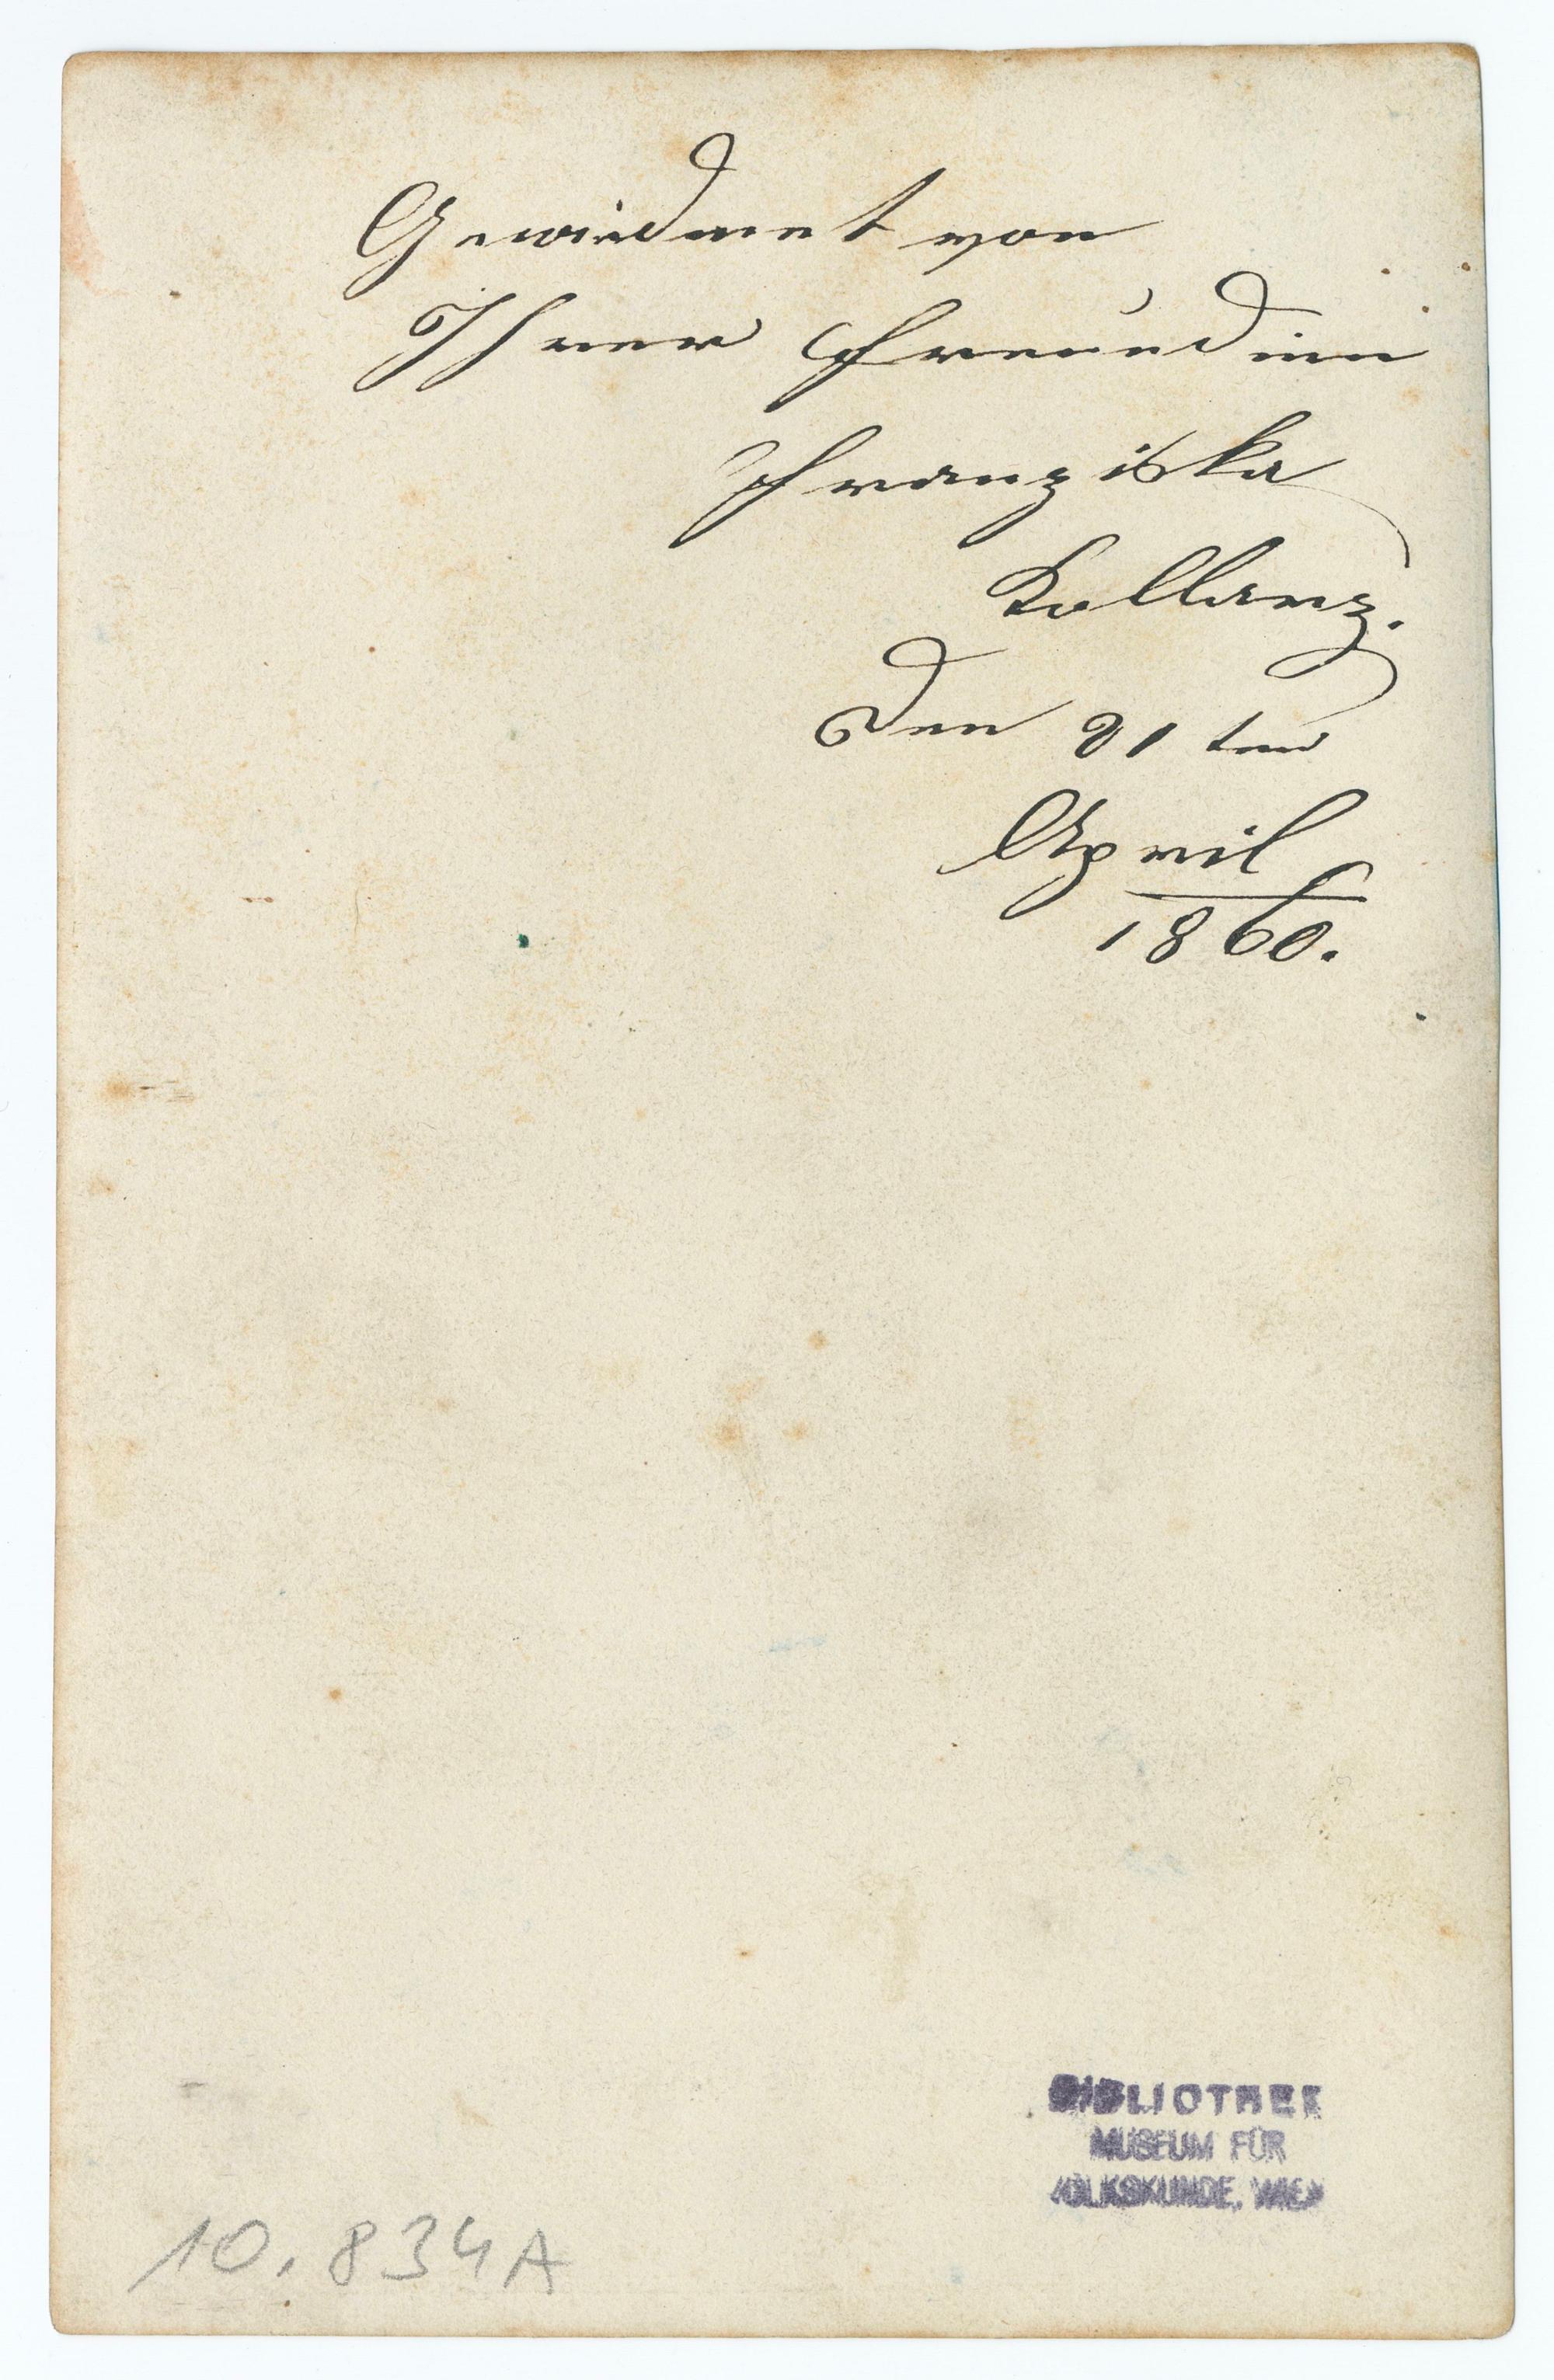 Gewidmet von
Ihrer Freundinn
Franziska
Kollanz.
den 21ten
April
1860.
BIBLIOTHEK
MUSEUM FÜR
VOLKSKUNDE, WIEN
10.834A